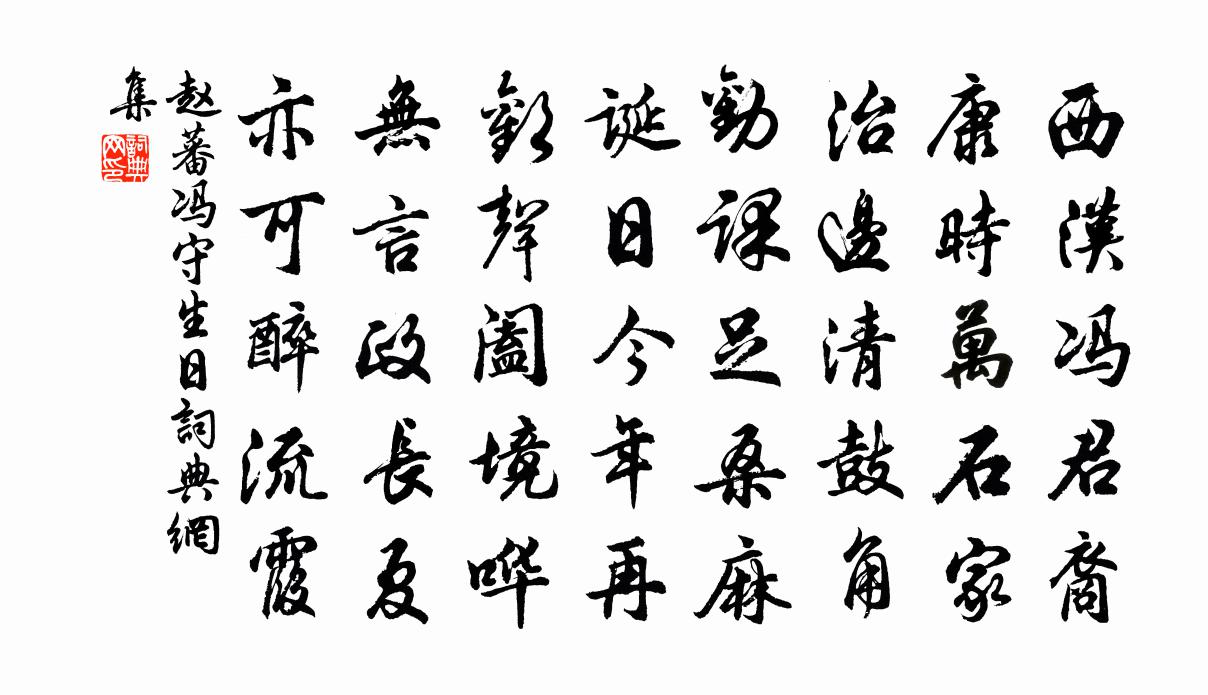 西漢冯君裔
康時萬石家
治邊清鼓角
勸課足桑麻
誕日今年再
歡聲闔境哗
無言政長夏
亦可醉流霞
赵蕃冯守生日詞典網
集
詞典
网印